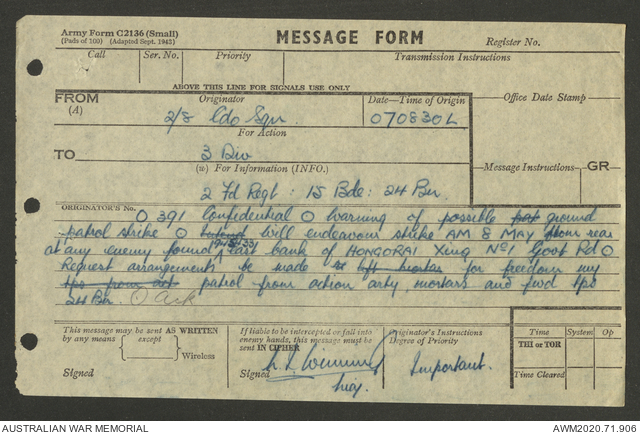 Army Form C2136 (Small)
(Pads of 100) (Adapted Sept. 1943)
MESSAGE FORM
Register No.
Call
Ser. No.
Priority
Transmission Instructions
ABOVE THIS LINE FOR SIGNALS USE ONLY
FROM
(A)
Originator
2/8 Cdo Sqn.
Date—Time of Origin
070830L
Office Date Stamp
For Action
TO
3 Div
(w) For Information (INFO.)
Message Instructions
GR
2 Fd Regt : 15 Bde : 24 Bn.
ORIGINATOR'S No.
O 391 Confidential O Warning of possible ground
patrol strike O will endeavour strike AM 8 MAY from rear
at any enemy found east bank of HONGORAI Xing No 1 Govt Rd O
Request arrangements be made left mortar for freedom my
tps from act patrol from action arty, mortars and fwd tps
24 Bn. O Ack
This message may be sent AS WRITTEN
by any means
except
Wireless
Signed
If liable to be intercepted or fall into
enemy hands, this message must be
sent IN CIPHER
Signed
Originator's Instructions
Degree of Priority
Important.
Time
System
Op
THI or TOR
Time Cleared
AUSTRALIAN WAR MEMORIAL
AWM2020.71.906